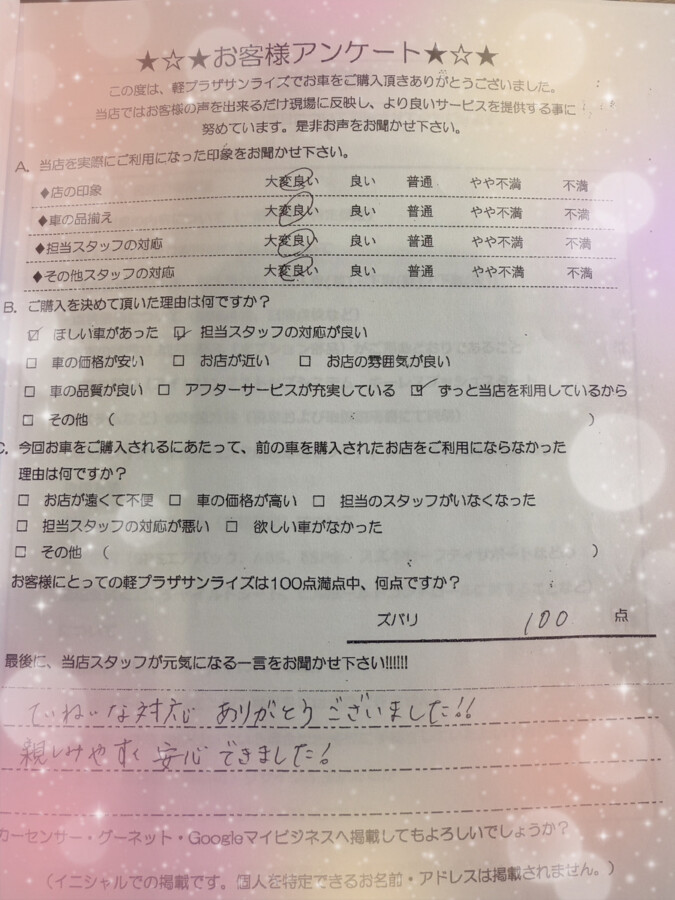 ★☆★お客様アンケート★☆★
この度は、軽プラザサンライズでお車をご購入頂きありがとうございました。
当店ではお客様の声を出来るだけ現場に反映し、より良いサービスを提供する事に
努めています。是非お声をお聞かせ下さい。
A. 当店を実際にご利用になった印象をお聞かせ下さい。
◆店の印象 大変良い 良い 普通 やや不満 不満
◆車の品揃え 大変良い 良い 普通 やや不満 不満
◆担当スタッフの対応 大変良い 良い 普通 やや不満 不満
◆その他スタッフの対応 大変良い 良い 普通 やや不満 不満
B. ご購入を決めて頂いた理由は何ですか？
☑ ほしい車があった ☑ 担当スタッフの対応が良い
□ 車の価格が安い □ お店が近い □ お店の雰囲気が良い
□ 車の品質が良い □ アフターサービスが充実している ☑ ずっと当店を利用しているから
□ その他 （ ）
C. 今回お車をご購入されるにあたって、前の車を購入されたお店をご利用にならなかった
理由は何ですか？
□ お店が遠くて不便 □ 車の価格が高い □ 担当のスタッフがいなくなった
□ 担当スタッフの対応が悪い □ 欲しい車がなかった
□ その他 （ ）
お客様にとっての軽プラザサンライズは100点満点中、何点ですか？
ズバリ 100 点
最後に、当店スタッフが元気になる一言をお聞かせ下さい!!!!!!
ていねいな対応 ありがとうございました!!
親しみやすく 安心できました!
カーセンサー・グーネット・Googleマイビジネスへ掲載してもよろしいでしょうか？
（イニシャルでの掲載です。個人を特定できるお名前・アドレスは掲載されません。）